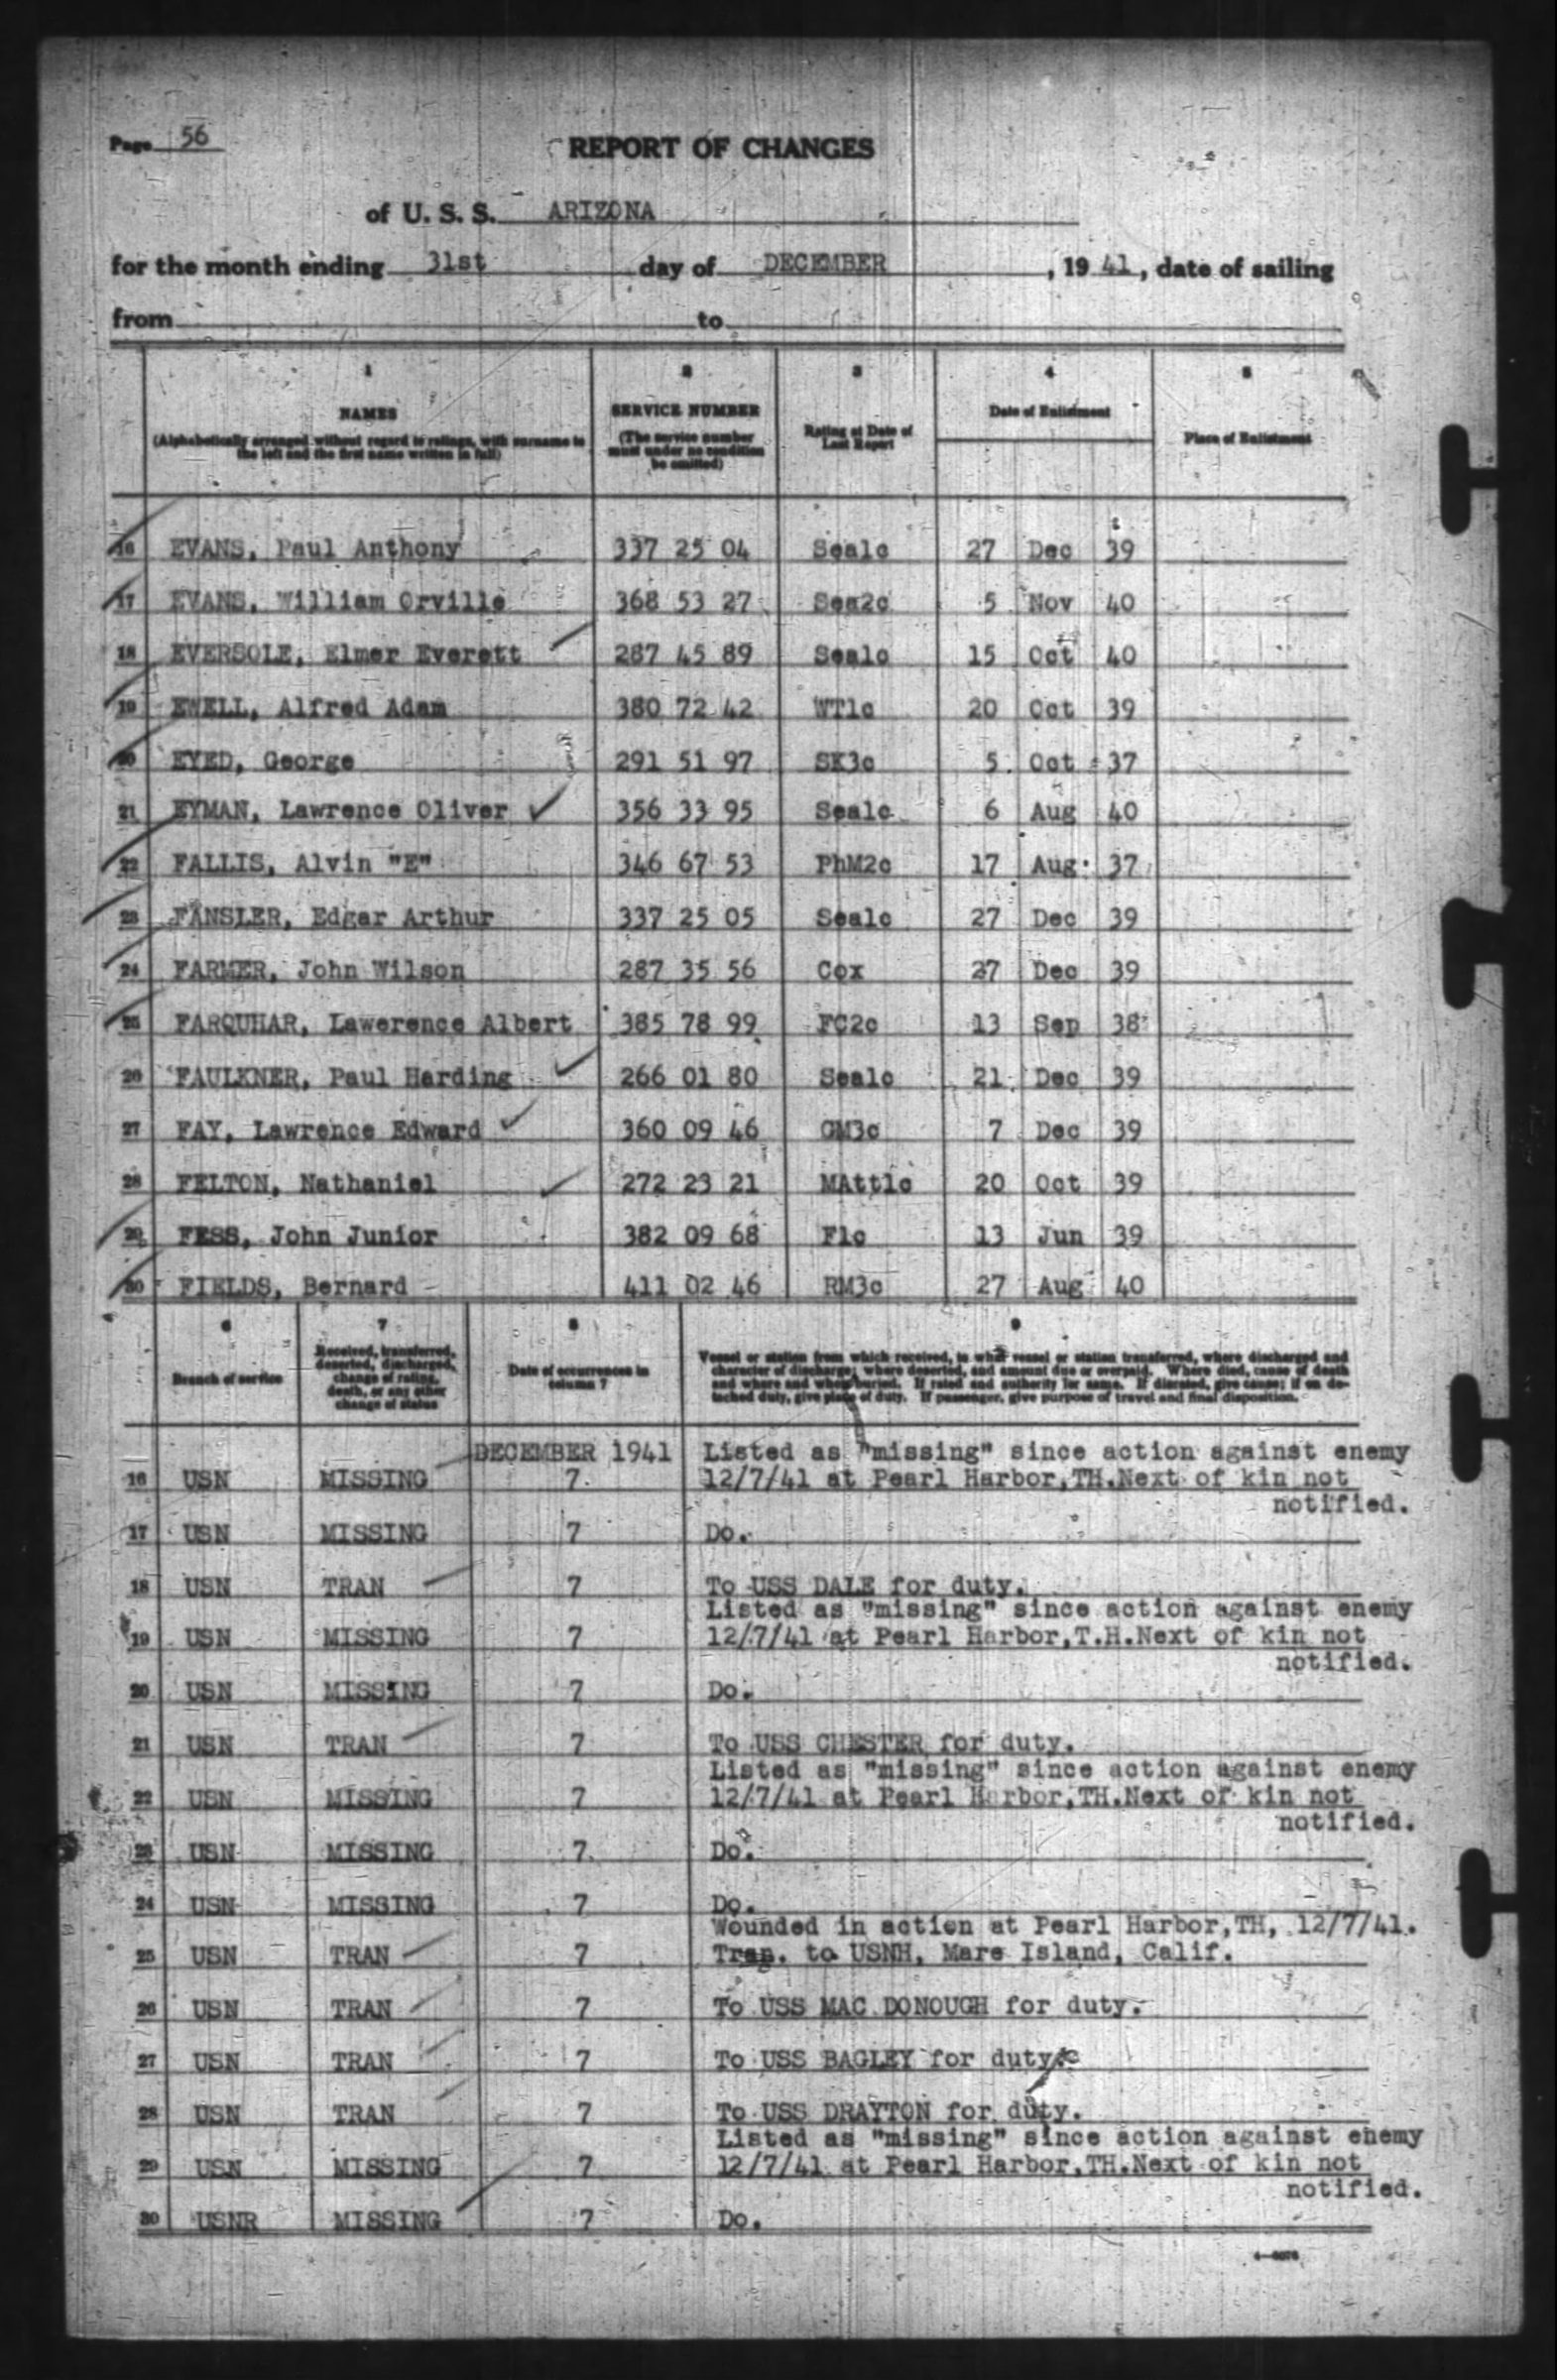 Page 56
REPORT OF CHANGES
of U. S. S. ARIZONA
for the month ending 31st day of DECEMBER, 19 41, date of sailing
from to
1 2 3 4 5
NAMES
(Alphabetically arranged without regard to ratings, with surname to
the left and the first name written in full)
SERVICE NUMBER
(The service number
must under no condition
be omitted)
Rating at Date of
Last Report
Date of Enlistment
Place of Enlistment
16 EVANS, Paul Anthony 337 25 04 Sea1c 27 Dec 39
17 EVANS, William Orville 368 53 27 Sea2c 5 Nov 40
18 EVERSOLE, Elmer Everett 287 45 89 Sea1c 15 Oct 40
19 EWELL, Alfred Adam 380 72 42 WT1c 20 Oct 39
20 EYED, George 291 51 97 SK3c 5 Oct 37
21 EYMAN, Lawrence Oliver 356 33 95 Sea1c 6 Aug 40
22 FALLIS, Alvin "E" 346 67 53 PhM2c 17 Aug 37
23 FANSLER, Edgar Arthur 337 25 05 Sea1c 27 Dec 39
24 FARMER, John Wilson 287 35 56 Cox 27 Dec 39
25 FARQUHAR, Lawerence Albert 385 78 99 FC2c 13 Sep 38
26 FAULKNER, Paul Harding 266 01 80 Sea1c 21 Dec 39
27 FAY, Lawrence Edward 360 09 46 GM3c 7 Dec 39
28 FELTON, Nathaniel 272 23 21 MAtt1c 20 Oct 39
29 FESS, John Junior 382 09 68 F1c 13 Jun 39
30 FIELDS, Bernard 411 02 46 RM3c 27 Aug 40
6 7 8 9
Branch of service
Received, transferred,
deserted, discharged,
change of rating,
death, or any other
change of status
Date of occurrences in
column 7
Vessel or station from which received, to what vessel or station transferred, where discharged and
character of discharge; where deserted, and amount due or overpaid. Where died, cause of death
and where and when buried. If rated and authority for same. If disrated, give cause; if on de-
tached duty, give place of duty. If passenger, give purpose of travel and final disposition.
DECEMBER 1941 Listed as "missing" since action against enemy
16 USN MISSING 7 12/7/41 at Pearl Harbor,TH.Next of kin not
notified.
17 USN MISSING 7 Do.
18 USN TRAN 7 To USS DALE for duty.
Listed as "missing" since action against enemy
19 USN MISSING 7 12/7/41 at Pearl Harbor,T.H.Next of kin not
notified.
20 USN MISSING 7 Do.
21 USN TRAN 7 To USS CHESTER for duty.
Listed as "missing" since action against enemy
22 USN MISSING 7 12/7/41 at Pearl Harbor,TH.Next of kin not
notified.
23 USN MISSING 7 Do.
24 USN MISSING 7 Do.
Wounded in action at Pearl Harbor,TH, 12/7/41.
25 USN TRAN 7 Tran. to USNH, Mare Island, Calif.
26 USN TRAN 7 To USS MAC DONOUGH for duty.
27 USN TRAN 7 To USS BAGLEY for duty.
28 USN TRAN 7 To USS DRAYTON for duty.
Listed as "missing" since action against enemy
29 USN MISSING 7 12/7/41 at Pearl Harbor,TH.Next of kin not
notified.
30 USNR MISSING 7 Do.